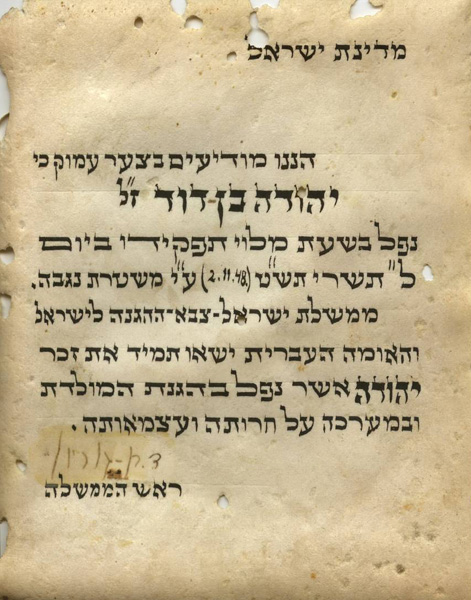 מדינת ישראל
הננו מודיעים בצער עמוק כי
יהודה בן-דוד ז״ל
נפל בשעת מלוי תפקידו ביום
ל״ תשרי תש״ט (2.11.48) ע״י משטרת נגבה.
ממשלת ישראל-צבא-ההגנה לישראל
והאומה העברית ישאו תמיד את זכר
יהודה אשר נפל בהגנת המולדת
ובמערכה על חרותה ועצמאותה.
ד. בן-גוריון
ראש הממשלה